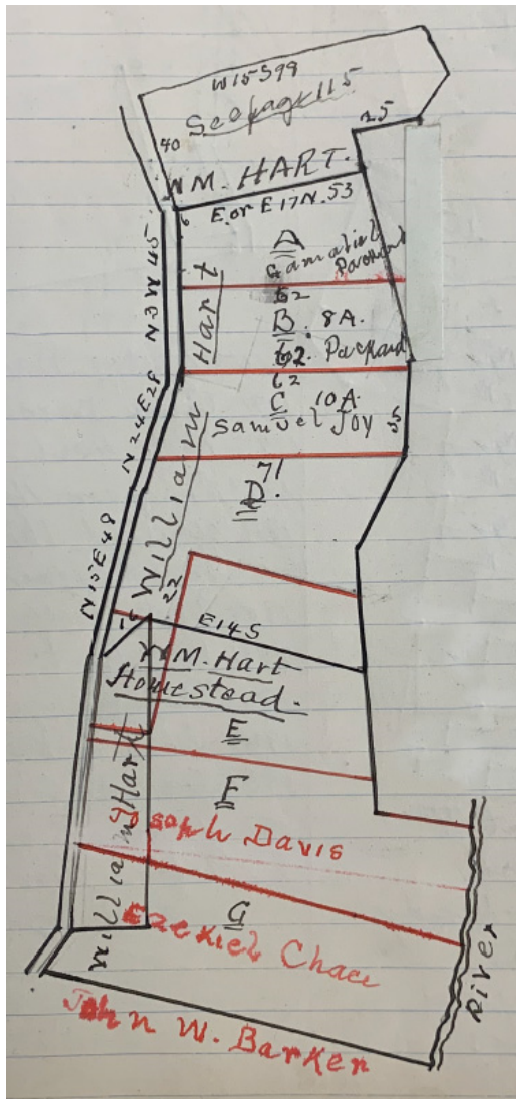 W15S98
See page 115
40
25
WM. HART.
6
E. or E17N. 53
A
Gamaliel
Packard
N3W45
62
B. 8A.
62. Packard
62
C 10A.
Samuel Joy
55
N24E28
William Hart
71
D.
N15E48
22
15
E14S
WM. Hart
Homestead.
E
F
William Hart
Joseph Davis
G
Ezekiel Chace
River
John W. Barker